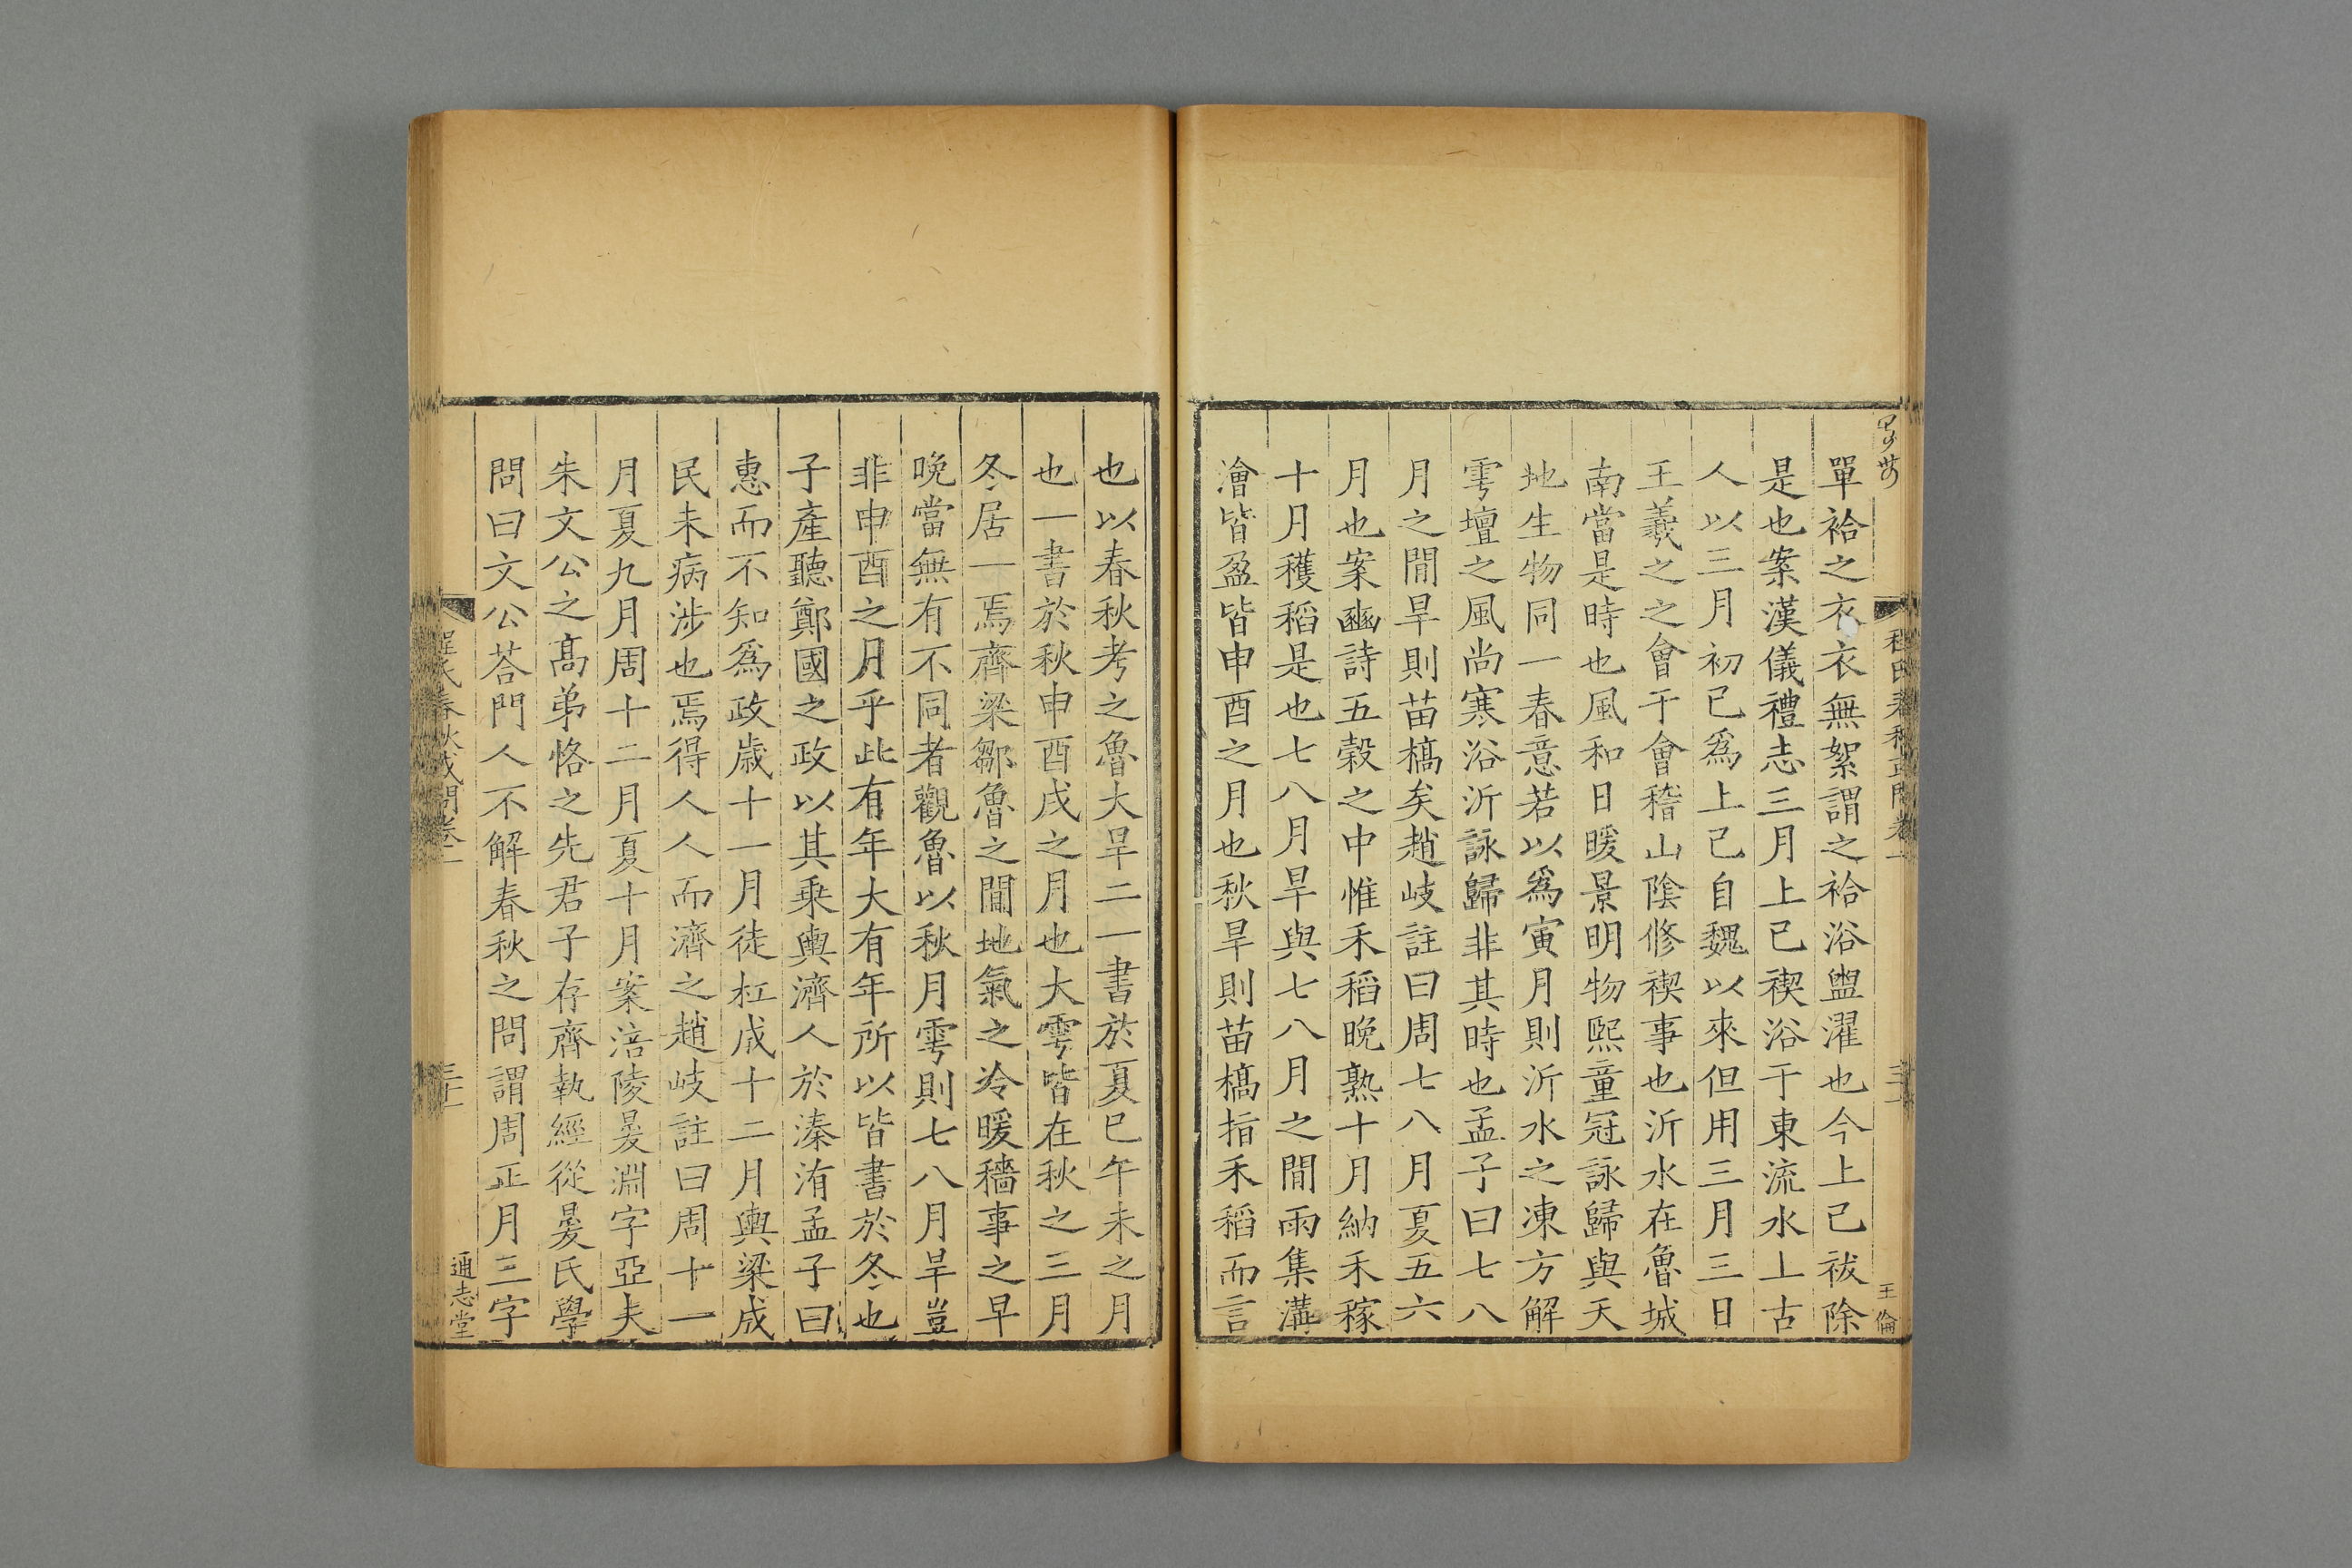 單袷之衣衣無絮謂之袷浴盥濯也今上已祓除
是也案漢儀禮志三月上已禊浴于東流水上古
人以三月初已爲上已自魏以來但用三月三日
王羲之之會于會稽山陰修禊事也沂水在魯城
南當是時也風和日暖景明物熙童冠詠歸與天
地生物同一春意若以爲寅月則沂水之凍方解
雩壇之風尚寒浴沂詠歸非其時也孟子曰七八
月之間旱則苗槁矣趙岐註曰周七八月夏五六
月也案豳詩五穀之中惟禾稻晚熟十月納禾稼
十月穫稻是也七八月旱與七八月之間雨集溝
澮皆盈皆申酉之月也秋旱則苗槁指禾稻而言
也以春秋考之魯大旱二一書於夏巳午未之月
也一書於秋申酉戌之月也大雩皆在秋之三月
冬居一焉齊梁鄒魯之間地氣之冷暖穡事之早
晚當無有不同者觀魯以秋月雩則七八月旱豈
非申酉之月乎此有年大有年所以皆書於冬也
子產聽鄭國之政以其乗輿濟人於溱洧孟子曰
惠而不知爲政歲十一月徒杠成十二月輿梁成
民未病涉也焉得人人而濟之趙岐註曰周十一
月夏九月周十二月夏十月案涪陵㬊淵字亞夫
朱文公之髙弟恪之先君子存齊執經從㬊氏學
問曰文公荅門人不解春秋之問謂周正月三字
程氏春秋或問卷一
通志堂
王倫